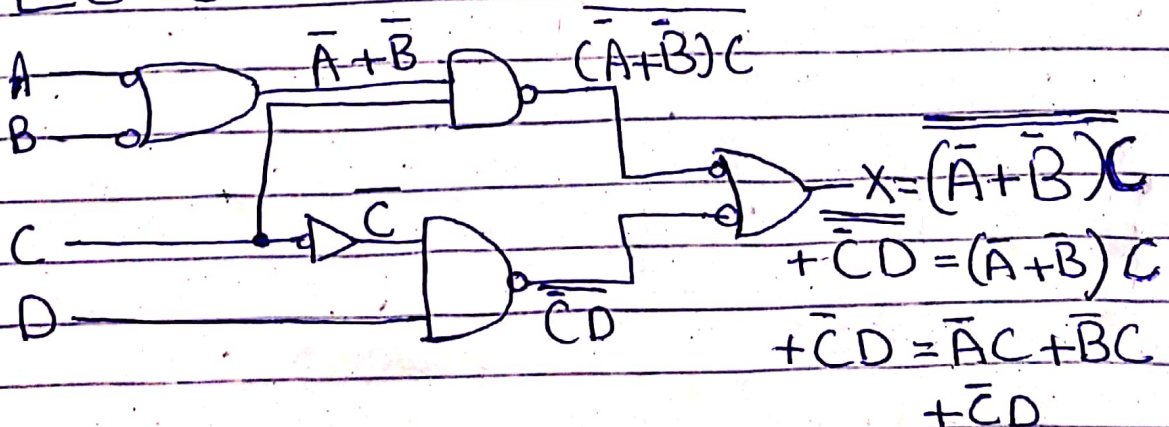 A
B
A̅ + B̅
(A̅+B̅)C̅
C
C̅
D
C̅D̅
X = (A̅+B̅)C
+ C̅D = (A̅+B̅) C
+ C̅D = A̅C + B̅C
+ C̅D